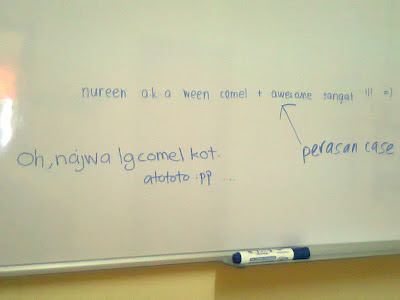 nureen a.k.a ween comel + awesome sangat !!! =)
perasan case
Oh, najwa lg comel kot.
atototo :pp ...